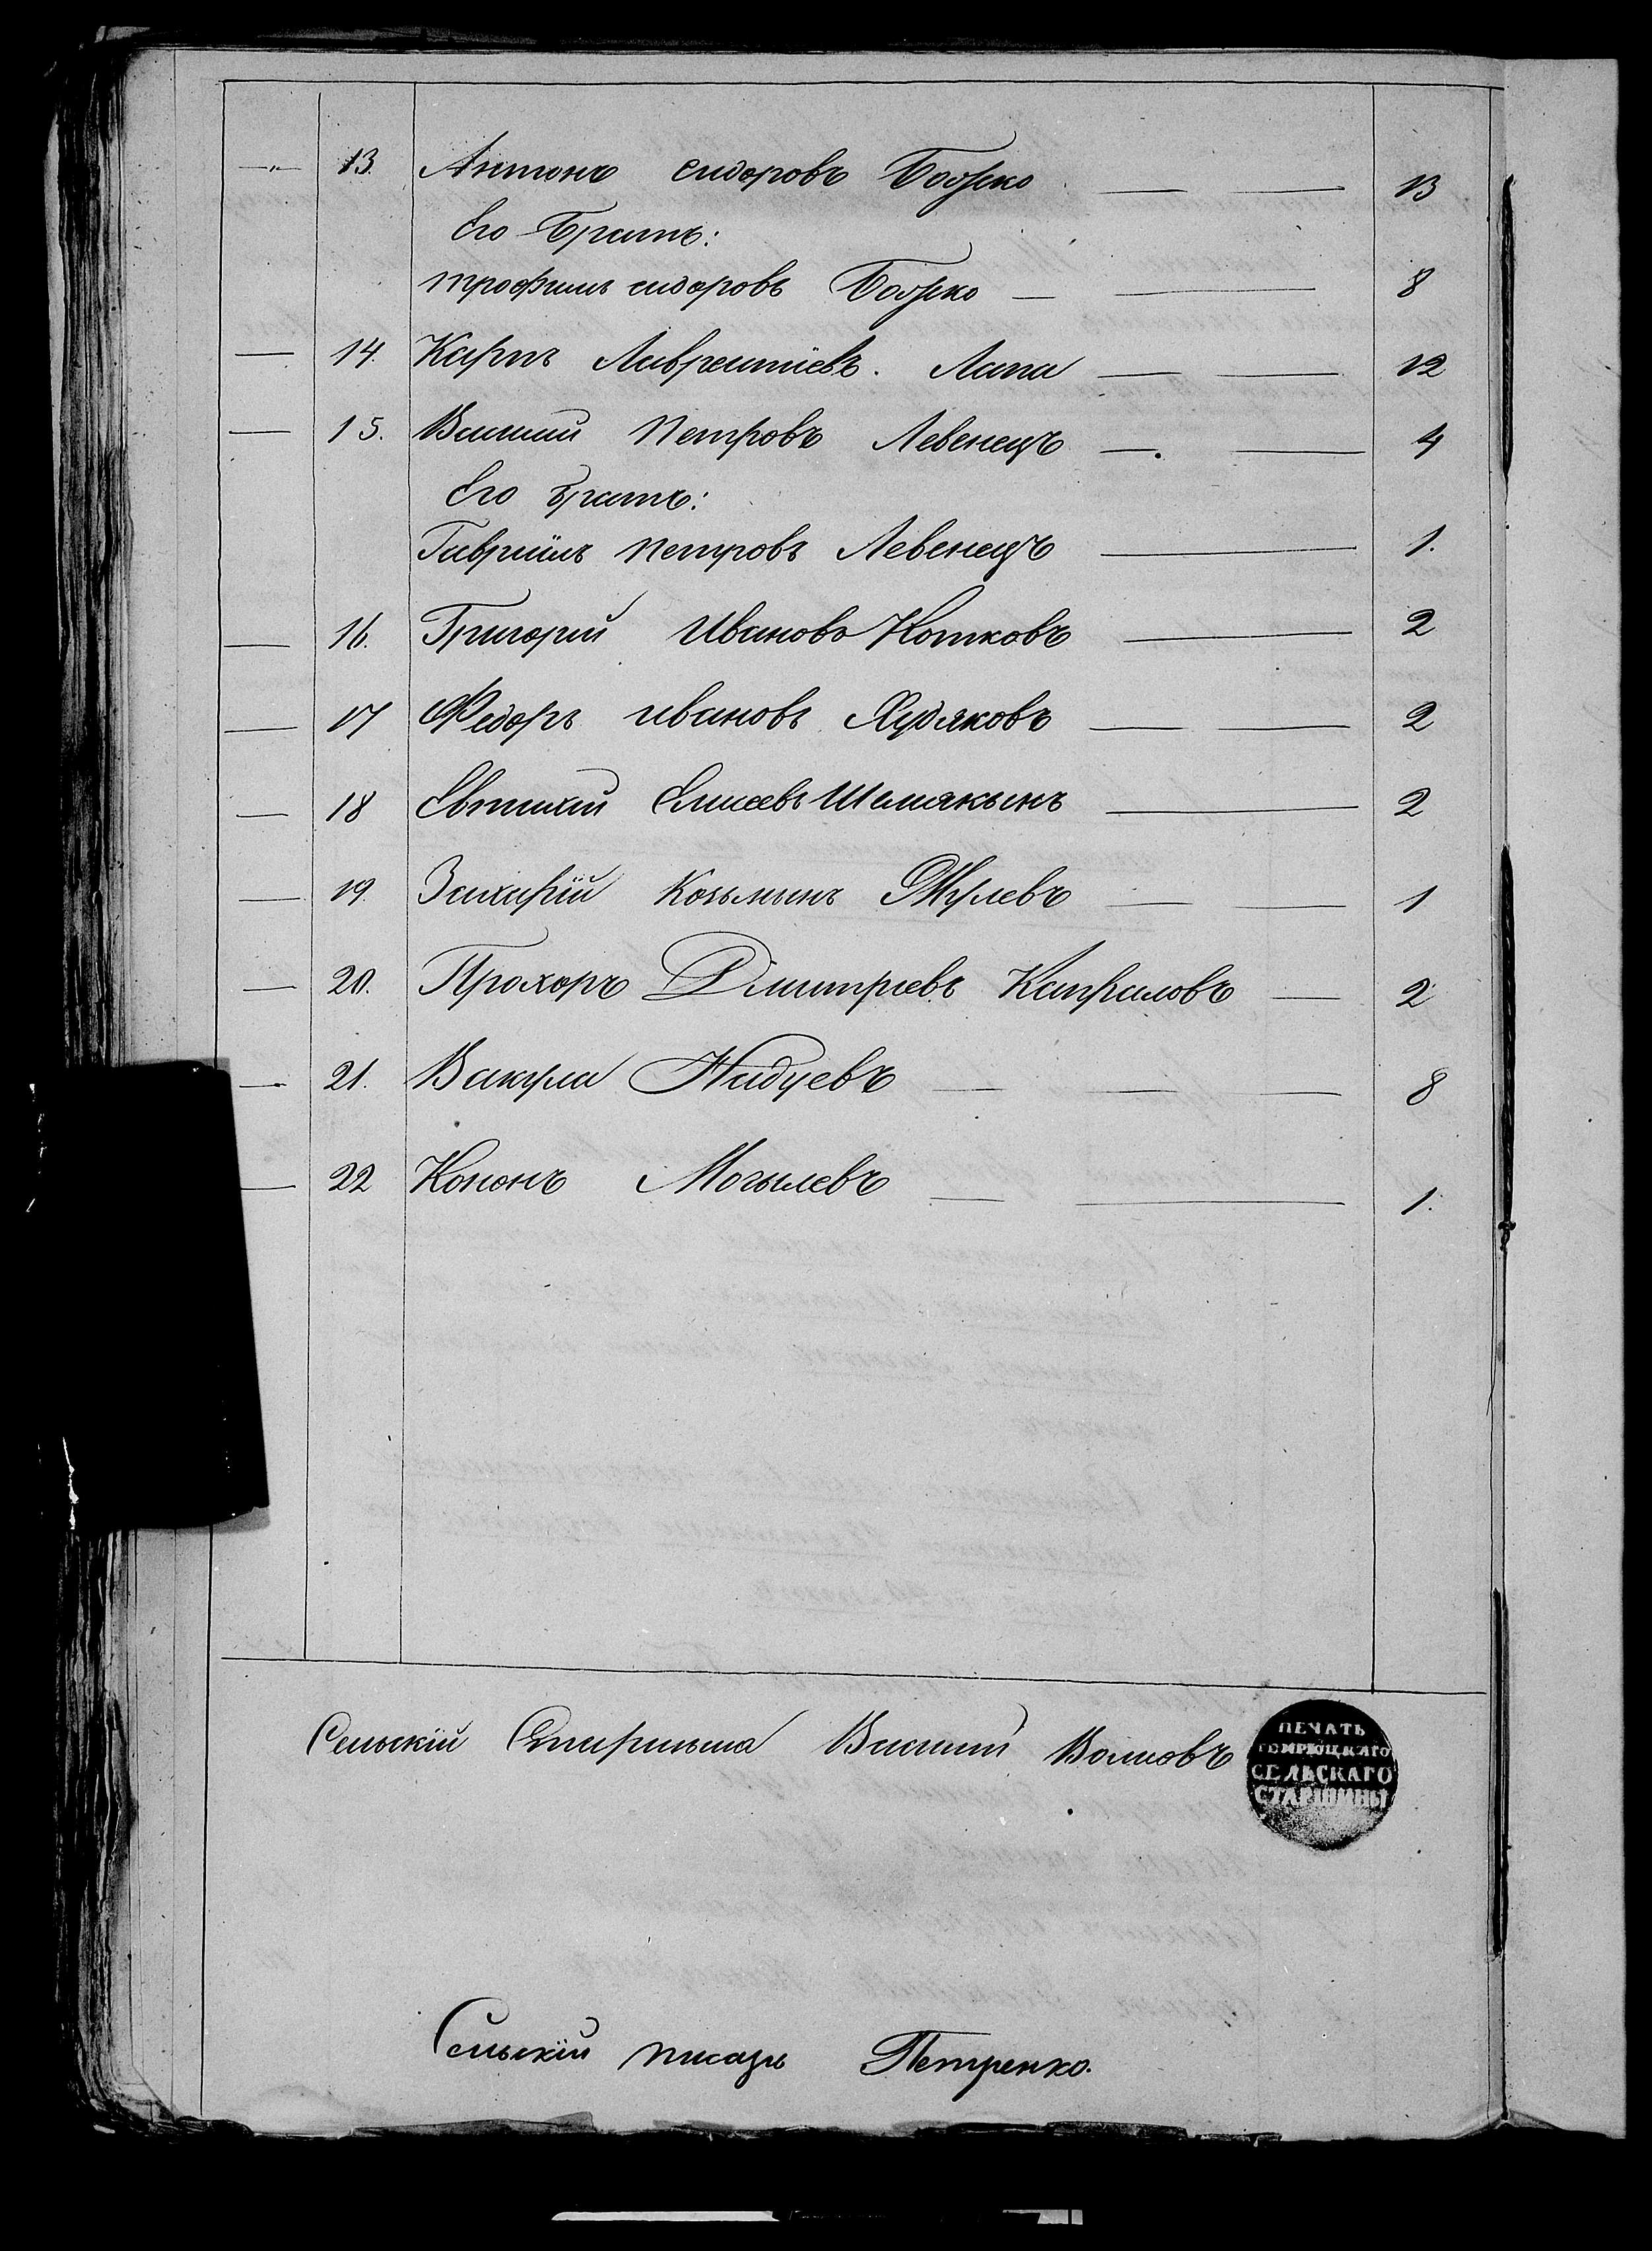 —„— 13. Антонъ сидоровъ Боярко — — 13
Его Братъ:
трофимъ сидоровъ Боярко — — 8
— 14. Карпъ Лаврентіевъ. Лапа — — 12
— 15. Василій Петровъ Левенецъ — — 4
Его братъ:
Гавріилъ Петровъ Левенецъ — 1.
— 16. Григорій Ивановъ Котковъ — 2
— 17 Федоръ ивановъ Худяковъ — — 2
— 18 Евтихій Елисеевъ Шемякынъ — 2
— 19. Захарій Козьмынъ Жулевъ — — 1
— 20. Прохоръ Дмитріевъ Капраловъ — 2
— 21. Вакула Надуевъ — — — 8
— 22 Кононъ Могылевъ — — 1.
Сельскій Старшына Василій Волковъ
ПЕЧАТЬ
ТЕМРЮЦКАГО
СЕЛЬСКАГО
СТАРШИНЫ
Сельскій писарь Петренко.